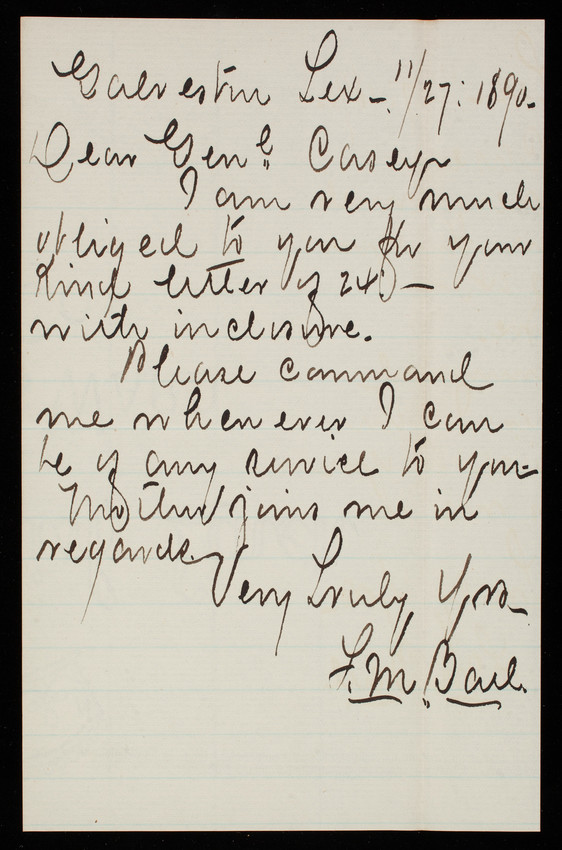 Galveston Tex - 11/27: 1890-
Dear Genl Casey
I am very much
obliged to you for your
kind letter of 24 -
with inclosure.
Please command
me whenever I can
be of any service to you -
Mother joins me in
regards.
Very Truly Yrs -
F. M.